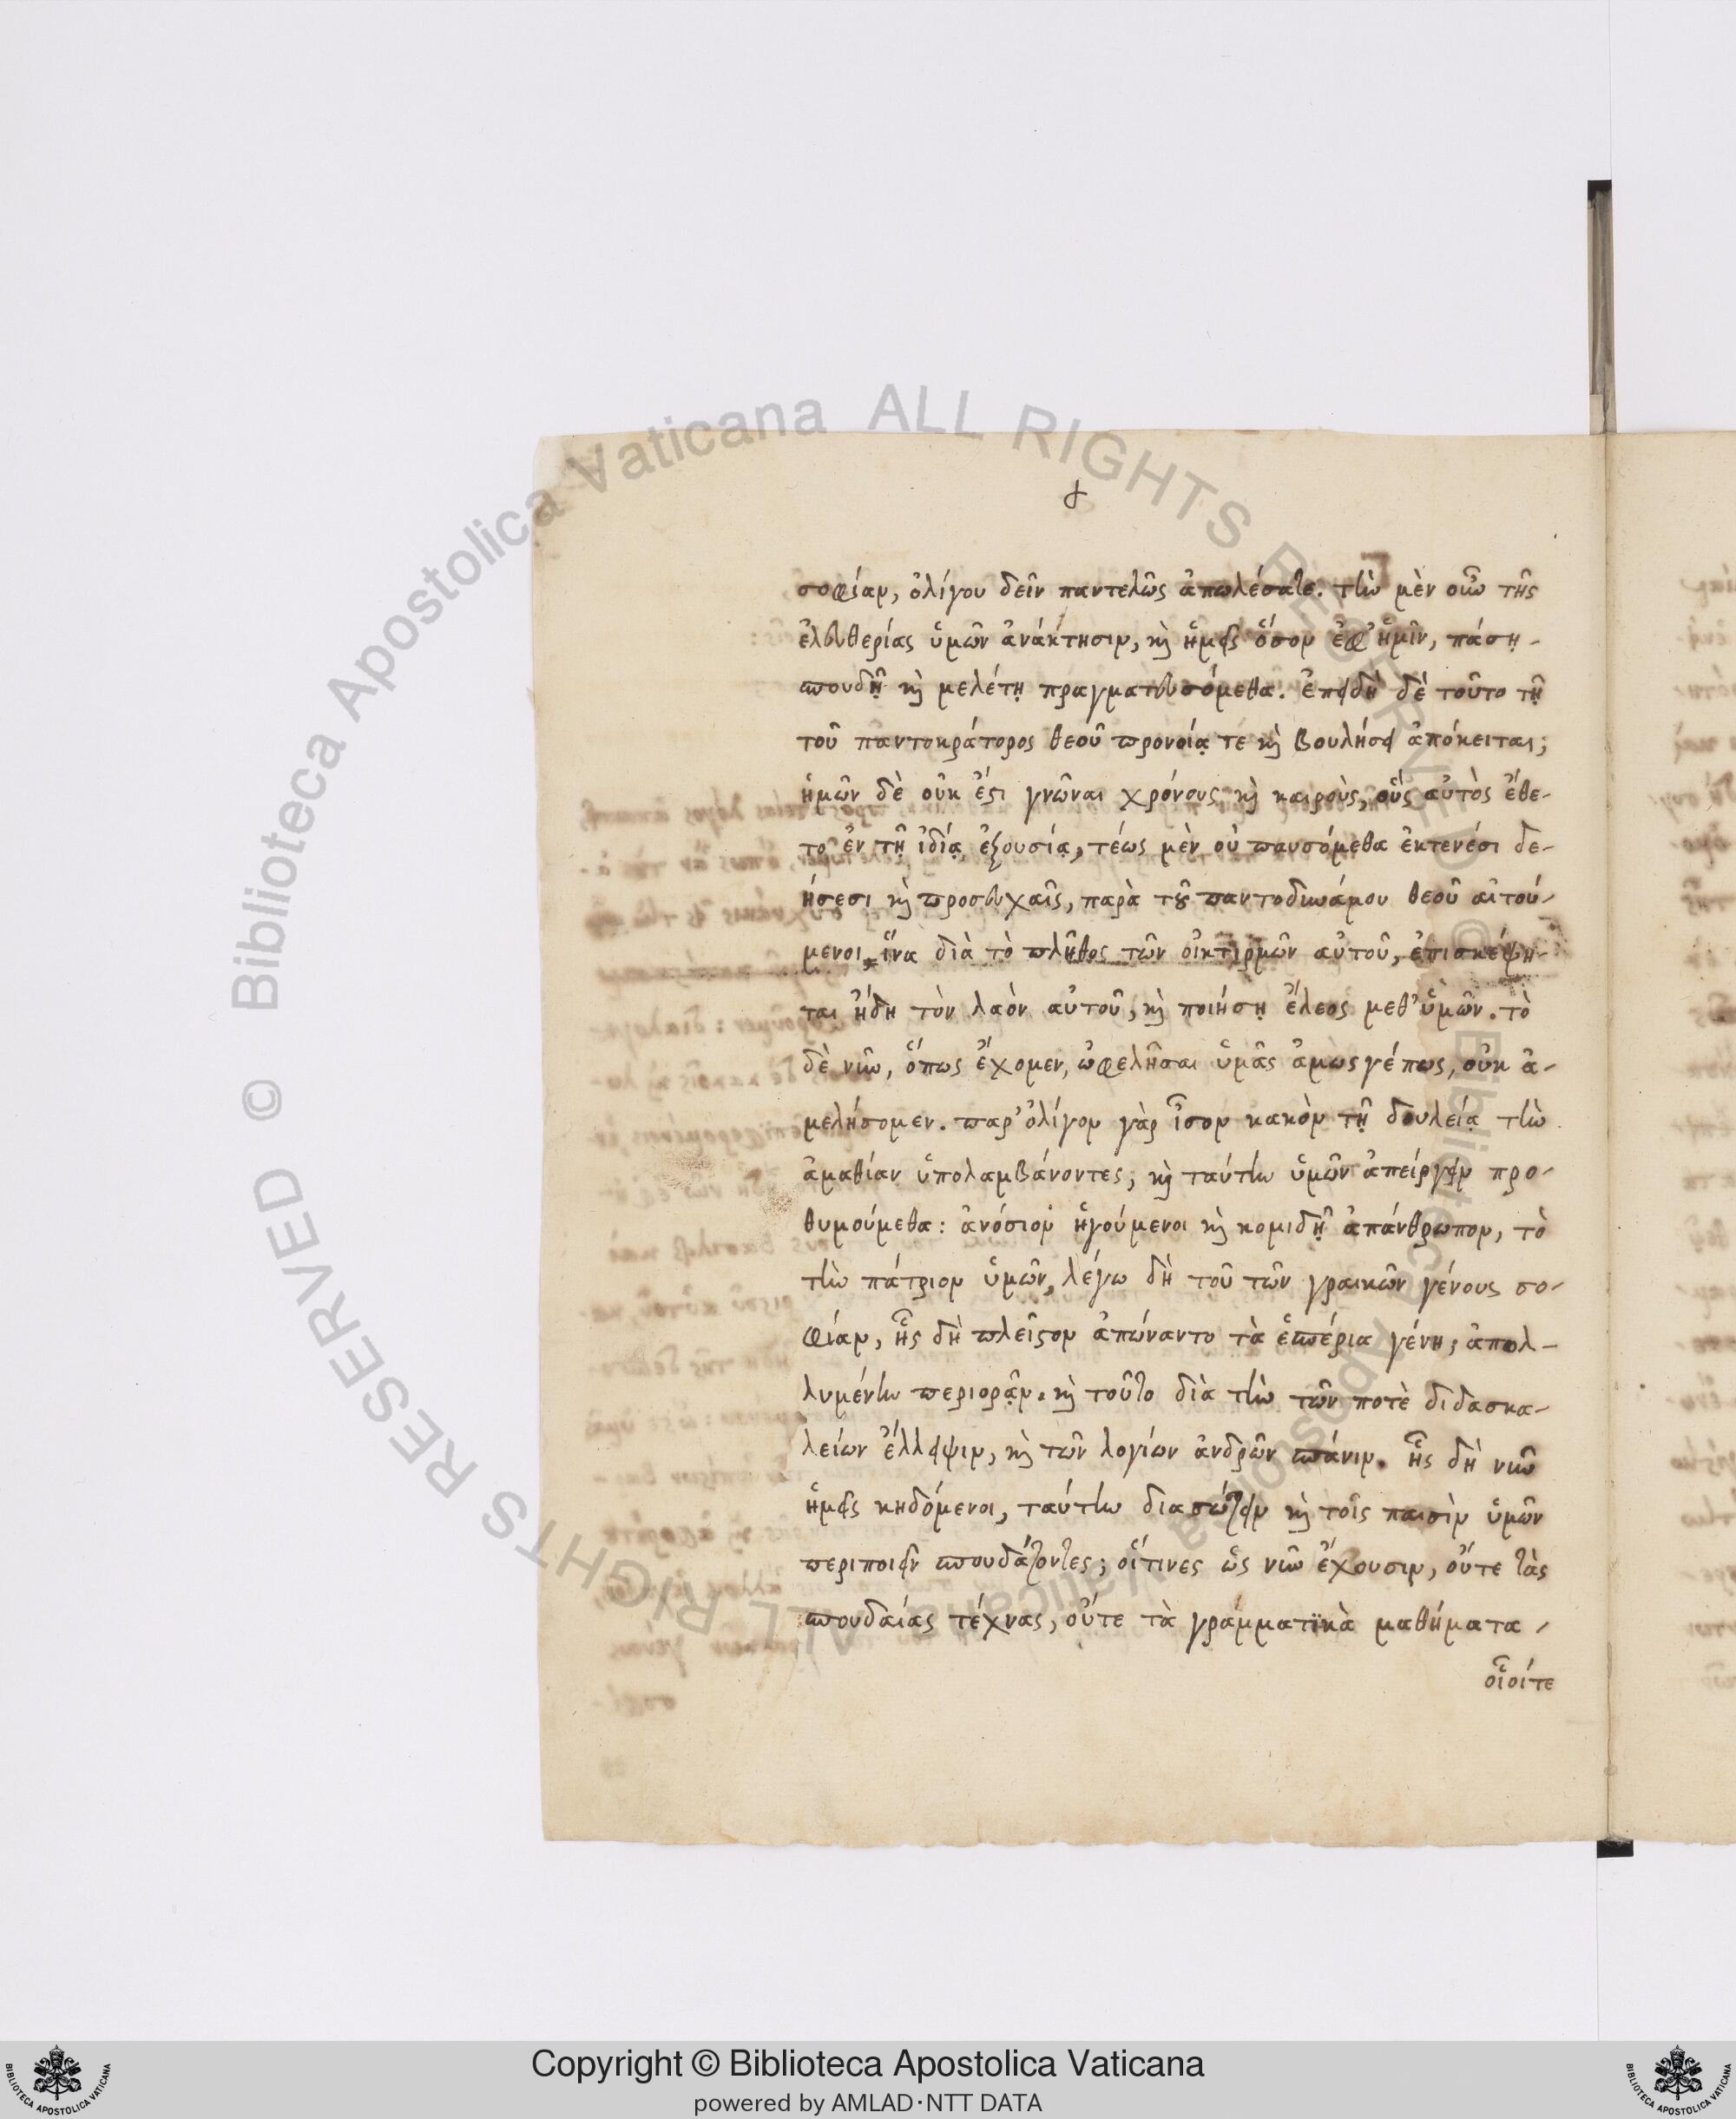 σοφίαν, ὀλίγου δεῖν παντελῶς ἀπωλέσατε. τὴν μὲν οὖν τῆς
ἐλευθερίας ὑμῶν ἀνάκτησιν, καὶ ἡμεῖς ὅσον ἐφ' ἡμῖν, πάσῃ
σπουδῇ καὶ μελέτῃ πραγματευσόμεθα. ἐπειδὴ δὲ τοῦτο τῇ
τοῦ παντοκράτορος θεοῦ προνοίᾳ τε καὶ βουλήσει ἀπόκειται;
ἡμῶν δὲ οὐκ ἔστι γνῶναι χρόνους καὶ καιροὺς, οὓς αὐτὸς ἔθε-
το ἐν τῇ ἰδίᾳ ἐξουσίᾳ, τέως μὲν οὐ παυσόμεθα ἐκτενέσι δε-
ήσεσι καὶ προσευχαῖς, παρὰ τοῦ παντοδυνάμου θεοῦ αἰτού-
μενοι, ἵνα διὰ τὸ πλῆθος τῶν οἰκτιρμῶν αὐτοῦ, ἐπισκέψη-
ται ἤδη τὸν λαὸν αὐτοῦ, καὶ ποιήσῃ ἔλεος μεθ' ὑμῶν. τὸ
δὲ νῦν, ὅπως ἔχομεν, ὠφελῆσαι ὑμᾶς ἀμῶς γέ πως, οὐκ ἀ-
μελήσομεν. παρ' ὀλίγον γὰρ ἶσον κακὸν τῇ δουλείᾳ τὴν
ἀμαθίαν ὑπολαμβάνοντες; καὶ ταύτην ὑμῶν ἀπείργειν προ-
θυμούμεθα: ἀνόσιον ἡγούμενοι καὶ κομιδῇ ἀπάνθρωπον, τὸ
τὴν πάτριον ὑμῶν, λέγω δὴ τοῦ τῶν γραικῶν γένους σο-
φίαν, ἧς δὴ πλεῖστον ἀπώναντο τὰ ἑσπέρια γένη; ἀπολ-
λυμένην περιορᾷν. καὶ τοῦτο διὰ τὴν τῶν ποτὲ διδασκα-
λείων ἔλλειψιν, καὶ τῶν λογίων ἀνδρῶν σπάνιν. ἧς δὴ νῦν
ἡμεῖς κηδόμενοι, ταύτην διασώζειν καὶ τοῖς παισὶν ὑμῶν
περιποιεῖν σπουδάζοντες; οἵτινες ὡς νῦν ἔχουσιν, οὔτε τὰς
σπουδαίας τέχνας, οὔτε τὰ γραμματϊκὰ μαθήματα
οἷοίτε
Copyright © Biblioteca Apostolica Vaticana
powered by AMLAD·NTT DATA
© Biblioteca Apostolica Vaticana ALL RIGHTS RESERVED
© Biblioteca Apostolica Vaticana ALL RIGHTS RESERVED
BIBLIOTECA APOSTOLICA VATICANA
BIBLIOTECA APOSTOLICA VATICANA